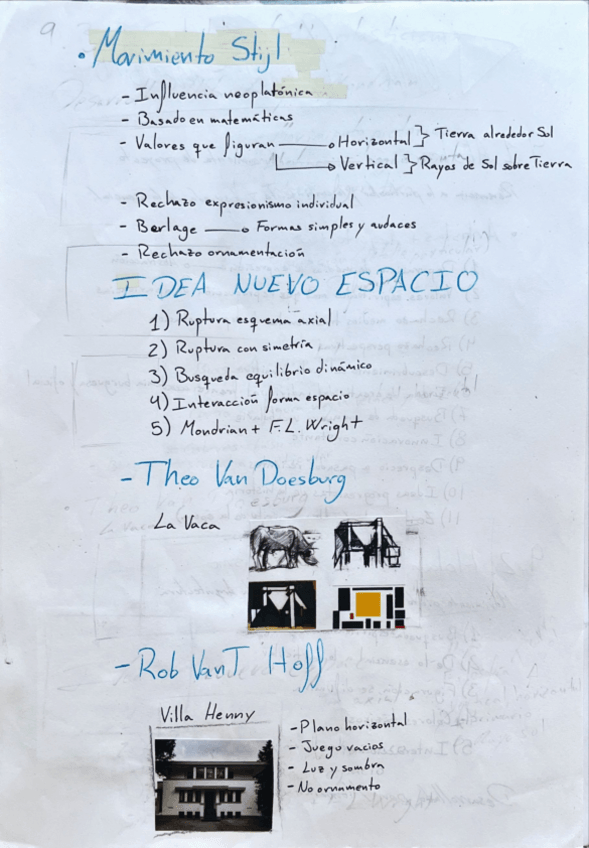 9
• Movimiento Stijl
- Influencia neoplatónica
- Basado en matemáticas
- Valores que figuran → Horizontal } Tierra alrededor Sol
→ Vertical } Rayos de Sol sobre Tierra
- Rechazo expresionismo individual
- Berlage → Formas simples y audaces
- Rechazo ornamentación
IDEA NUEVO ESPACIO
1) Ruptura esquema axial
2) Ruptura con simetría
3) Busqueda equilibrio dinámico
4) Interacción forma espacio
5) Mondrian + F.L. Wright
- Theo Van Doesburg
La Vaca
- Rob Van T Hoff
Villa Henny
- Plano horizontal
- Juego vacios
- Luz y sombra
- No ornamento